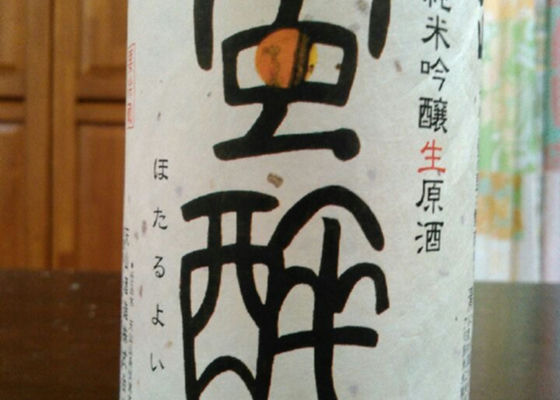 純米吟醸生原酒
蛍酔
ほたるよい